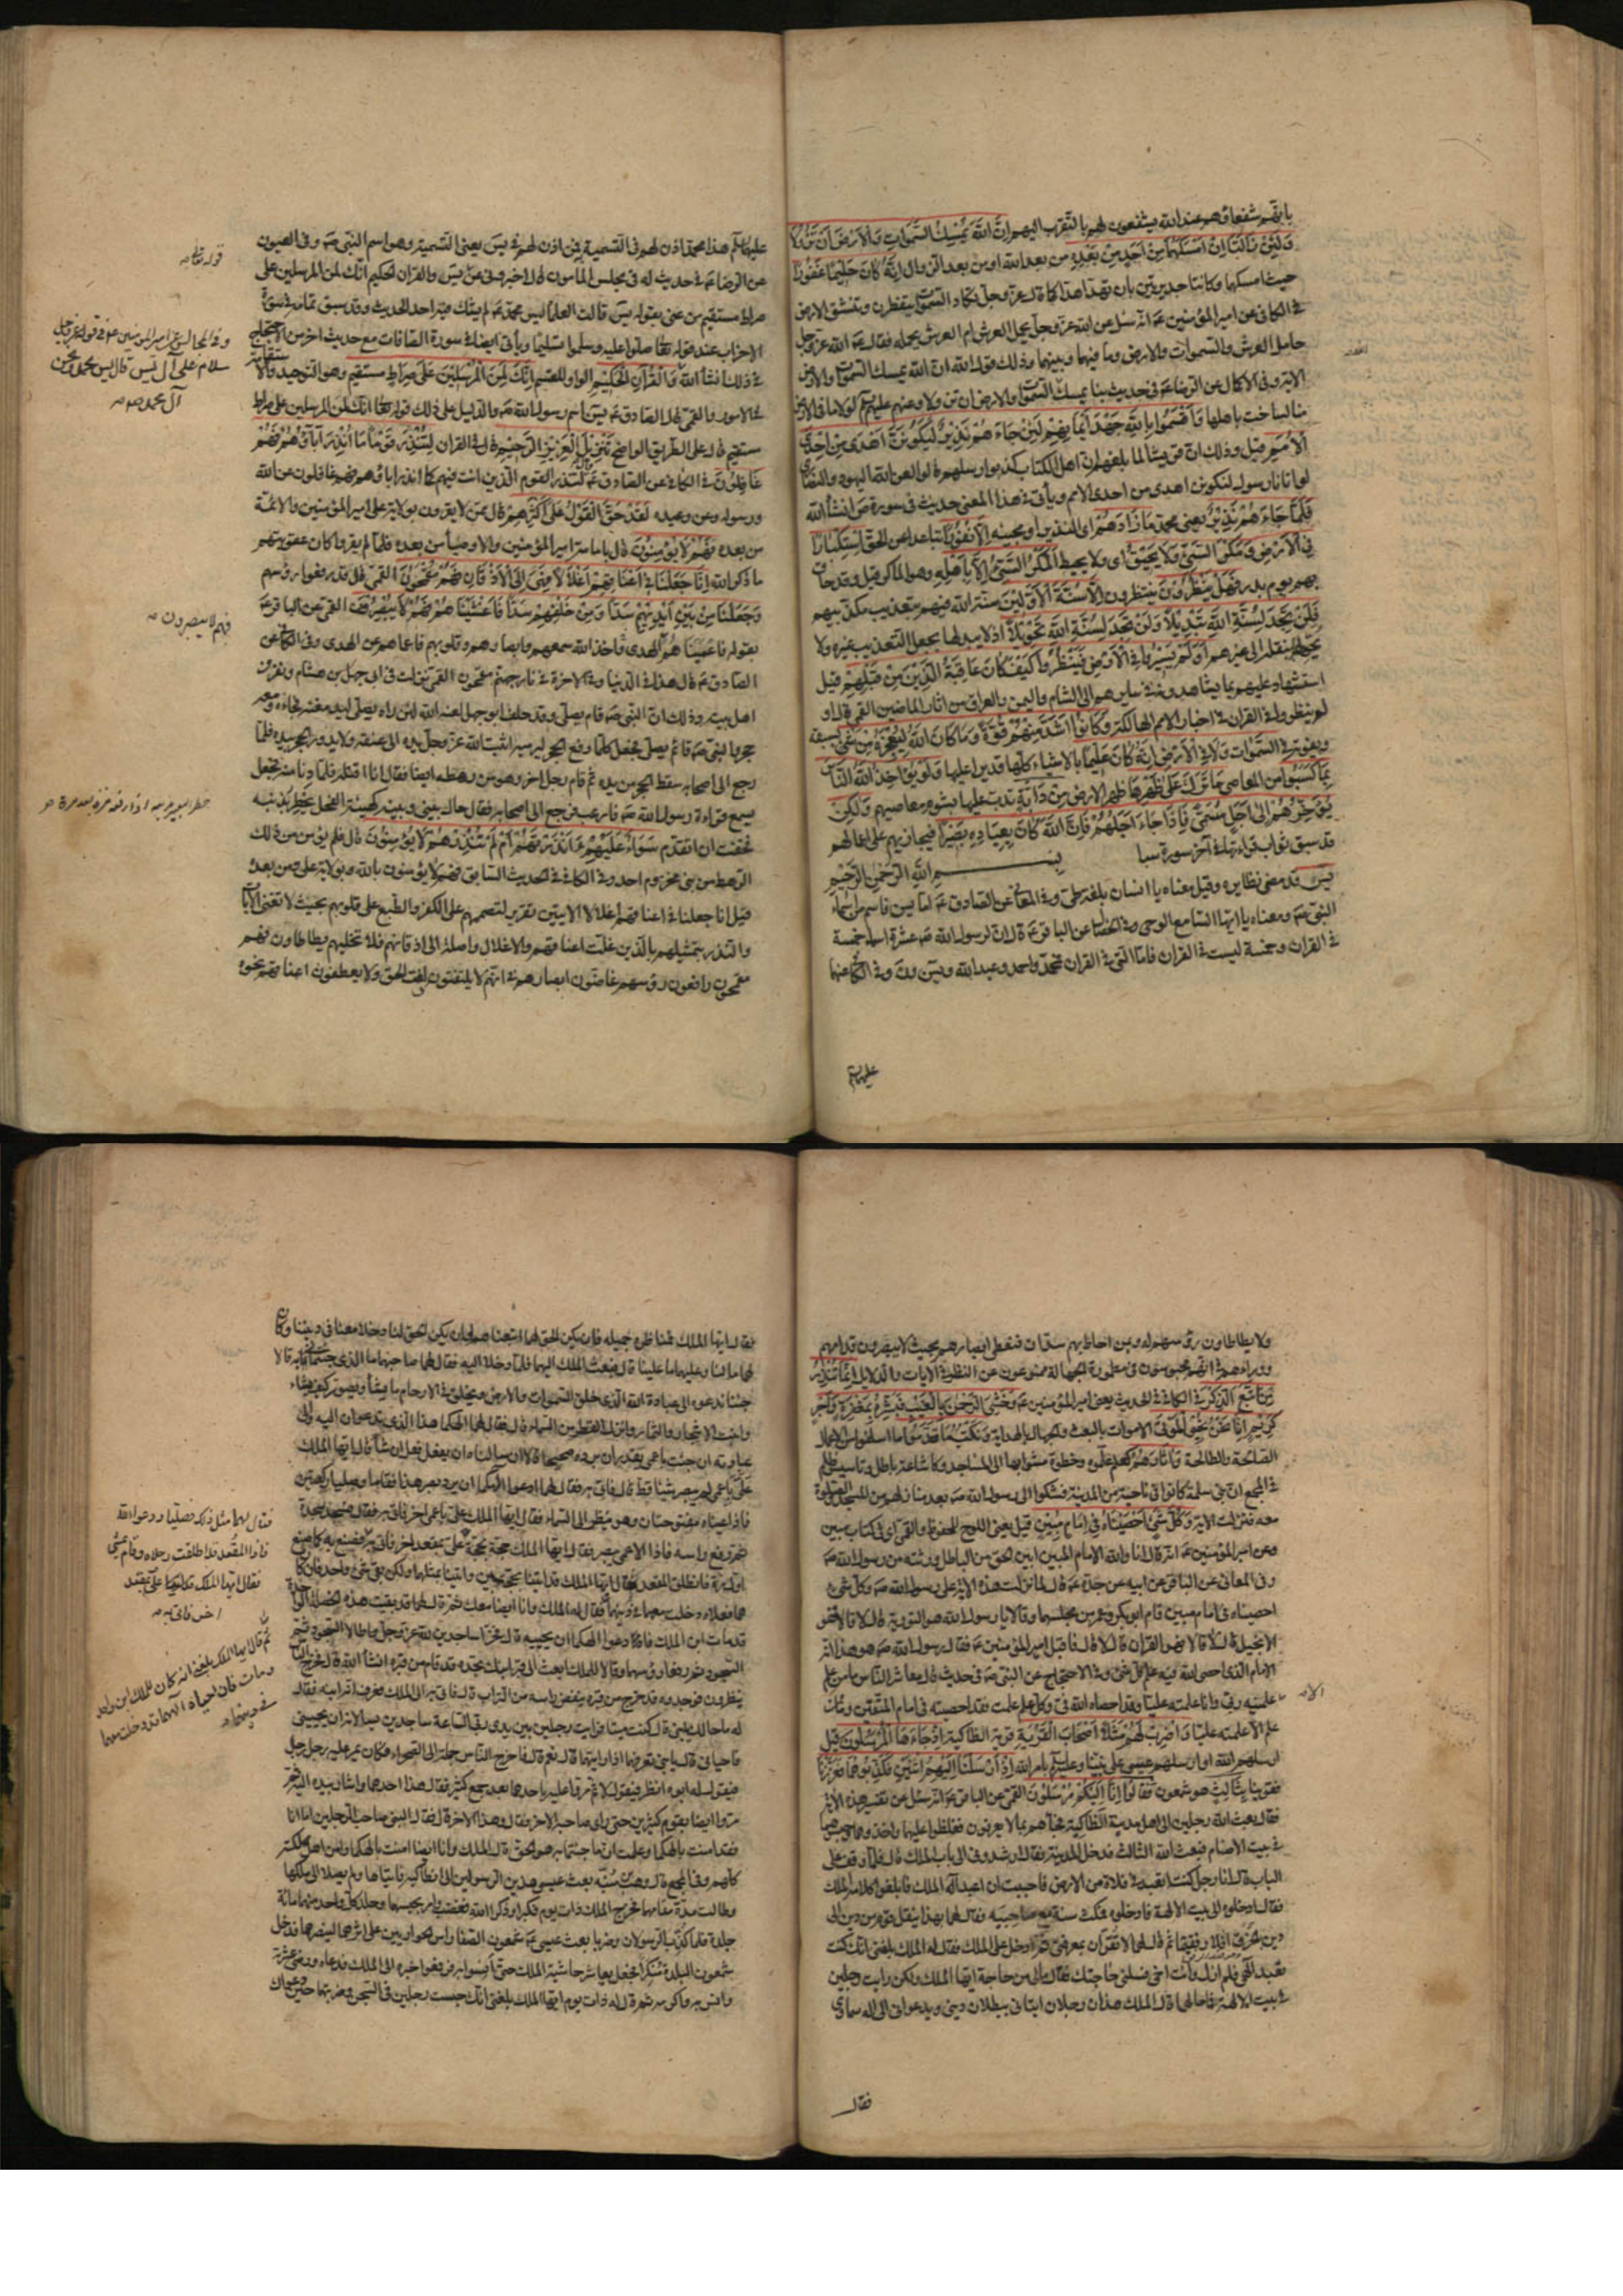 بانهم شفعاؤهم عند الله يشفعون لهم بالتقرب اليهم اِنَّ اللّٰهَ يُمْسِكُ السَّمٰوَاتِ وَالْاَرْضَ اَنْ تَزُولَا
وَلَئِنْ زَالَتَا اِنْ اَمْسَكَهُمَا مِنْ اَحَدٍ مِنْ بَعْدِهِ من بعد الله او من بعد الزوال اِنَّهُ كَانَ حَلِيمًا غَفُورًا
حيث امسكها وكانتا جديرتين بان تهدا هدا كما قال عز وجل تكاد السموات يتفطرن وتنشق الارض
في الكافي عن امير المؤمنين ع انه سئل عن الله عز وجل يحمل العرش ام العرش يحمله فقال ع الله عز وجل
حامل العرش والسموات والارض وما فيهما وبينهما وذلك قول الله ان الله يمسك السموات والارض
الاية وفي الاكمال عن الرضا ع في حديث بنا يمسك السموات والارض ان تزولا وعنهم عليهم السلم لولا ما في الارض
منا لساخت باهلها وَاَقْسَمُوا بِاللّٰهِ جَهْدَ اَيْمَانِهِمْ لَئِنْ جَاءَهُمْ نَذِيرٌ لَيَكُونُنَّ اَهْدَى مِنْ اِحْدَى
الْاُمَمِ قيل وذلك ان قريشا لما بلغهم ان اهل الكتاب كذبوا رسلهم قالوا لعن الله اليهود والنصارى
لو اتانا رسول لنكونن اهدى من احدى الامم ويأتي في هذا المعنى حديث في سورة ص انشأ الله
فَلَمَّا جَاءَهُمْ نَذِيرٌ يعني محمد مَا زَادَهُمْ اي النذير او مجيئه اِلَّا نُفُورًا تباعدا عن الحق اسْتِكْبَارًا
فِي الْاَرْضِ وَمَكْرَ السَّيِّئِ وَلَا يَحِيقُ اي ولا يحيط الْمَكْرُ السَّيِّئُ اِلَّا بِاَهْلِهِ وهو الماكر قيل وقد حاق
بهم يوم بدر فَهَلْ يَنْظُرُونَ ينتظرون اِلَّا سُنَّةَ الْاَوَّلِينَ سنة الله فيهم بتعذيب مكذبيهم
فَلَنْ تَجِدَ لِسُنَّةِ اللّٰهِ تَبْدِيلًا وَلَنْ تَجِدَ لِسُنَّةِ اللّٰهِ تَحْوِيلًا اذ لا يبدلها بجعل التعذيب غيره ولا
يحولها بنقله الى غيرهم اَوَلَمْ يَسِيرُوا فِي الْاَرْضِ فَيَنْظُرُوا كَيْفَ كَانَ عَاقِبَةُ الَّذِينَ مِنْ قَبْلِهِمْ قيل
استشهاد عليهم بما يشاهدونه في مسايرهم الى الشام واليمن والعراق من اثار الماضين القمي قال او
لم ينظروا في القران في اخبار الامم الهالكة وَكَانُوا اَشَدَّ مِنْهُمْ قُوَّةً وَمَا كَانَ اللّٰهُ لِيُعْجِزَهُ مِنْ شَيْءٍ ليسبقه
ويفوته فِي السَّمٰوَاتِ وَلَا فِي الْاَرْضِ اِنَّهُ كَانَ عَلِيمًا بالاشياء كلها قَدِيرًا عليها وَلَوْ يُؤَاخِذُ اللّٰهُ النَّاسَ
بِمَا كَسَبُوا من المعاصي مَا تَرَكَ عَلَى ظَهْرِهَا ظهر الارض مِنْ دَابَّةٍ تدب عليها بشؤم معاصيهم وَلَكِنْ
يُؤَخِّرُهُمْ اِلَى اَجَلٍ مُسَمًّى فَاِذَا جَاءَ اَجَلُهُمْ فَاِنَّ اللّٰهَ كَانَ بِعِبَادِهِ بَصِيرًا فيجازيهم على اعمالهم
قد سبق ثواب قراءتها في آخر سورة سبا بِسْمِ اللّٰهِ الرَّحْمٰنِ الرَّحِيمِ
يٰسٓ قد مضى نظايره وقيل معناه يا انسان بلغة طي وفي المعاني عن الصادق ع اما يس فاسم من اسماء
النبي ص ومعناه يا ايها السامع الوحي وفي الخصال عن الباقر ع قال ان لرسول الله ص عشرة اسماء خمسة
في القران وخمسة ليست في القران فاما التي في القران محمد واحمد وعبد الله ويس ون وفي الكافي عنهما
عليهما السلم
عليهما السلم هذا محمد اذن لهم في التسمية به فمن اذن لهم في يس يعني التسمية وهو اسم النبي ص وفي العيون
عن الرضا ع في حديث له في مجلس المامون قال اخبروني عن يس والقران الحكيم انك لمن المرسلين على
صراط مستقيم من عنى بقوله يس قالت العلماء يس محمد ع لم يشك فيه احد الحديث وقد سبق تمامه في سورة
الاحزاب عند قوله تعالى صلوا عليه وسلموا تسليما ويأتي ايضا في سورة الصافات مع حديث اخر من الاحتجاج
في ذلك انشأ الله وَالْقُرْآنِ الْحَكِيمِ الواو للقسم اِنَّكَ لَمِنَ الْمُرْسَلِينَ عَلَى صِرَاطٍ مُسْتَقِيمٍ وهو التوحيد والاستقامة
في الامور والقمي قال الصادق ع يس اسم رسول الله ص والدليل على ذلك قوله تعالى انك لمن المرسلين على صراط
مستقيم قال على الطريق الواضح تَنْزِيلَ الْعَزِيزِ الرَّحِيمِ قال القران لِتُنْذِرَ قَوْمًا مَا اُنْذِرَ اٰبَاؤُهُمْ فَهُمْ
غَافِلُونَ في الكافي عن الصادق ع لتنذر القوم الذين انت فيهم كما انذر اباؤهم فهم غافلون عن الله
ورسوله وعن وعيده لَقَدْ حَقَّ الْقَوْلُ عَلَى اَكْثَرِهِمْ قال ممن لا يقرون بولاية علي امير المؤمنين والائمة
من بعده فَهُمْ لَا يُؤْمِنُونَ قال بامامة امير المؤمنين والاوصياء من بعده فلما لم يقروا كان عقوبتهم
ما ذكر الله اِنَّا جَعَلْنَا فِي اَعْنَاقِهِمْ اَغْلَالًا فَهِيَ اِلَى الْاَذْقَانِ فَهُمْ مُقْمَحُونَ القمي قال قد رفعوا رؤسهم
وَجَعَلْنَا مِنْ بَيْنِ اَيْدِيهِمْ سَدًّا وَمِنْ خَلْفِهِمْ سَدًّا فَاَغْشَيْنَاهُمْ فَهُمْ لَا يُبْصِرُونَ القمي عن الباقر ع
يقول فاعميناهم الهدى واخذ الله سمعهم وابصارهم وقلوبهم فاعماهم عن الهدى وفي الكافي عن
الصادق ع قال هذا في الدنيا وفي الاخرة في نار جهنم مقمحون القمي نزلت في ابي جهل بن هشام ونفر من
اهل بيته وذلك ان النبي ص قام يصلي وقد حلف ابو جهل لعنه الله لئن راه يصلي ليدمغنه فجاءه ومعه
حجر والنبي ص قائم يصلي فجعل كلما رفع الحجر ليرميه اثبت الله عز وجل يده الى عنقه ولا يدور الحجر بيده فلما
رجع الى اصحابه سقط الحجر من يده ثم قام رجل اخر وهو من رهطه ايضا فقال انا اقتله فلما دنا منه فجعل
يسمع قراءة رسول الله ص فارعب فرجع الى اصحابه فقال حال بيني وبينه كهيئة الفحل يخطر بذنبه
فخفت ان اتقدم سَوَاءٌ عَلَيْهِمْ ءَاَنْذَرْتَهُمْ اَمْ لَمْ تُنْذِرْهُمْ لَا يُؤْمِنُونَ قال فلم يؤمن من ذلك
الرهط من بني مخزوم احد وفي الكافي في الحديث السابق فهم لا يؤمنون بالله وبولاية علي ومن بعده
قيل انا جعلنا في اعناقهم اغلالا الايتين تقرير لتصميمهم على الكفر والطبع على قلوبهم بحيث لا تغني الايات
والنذر بتمثيلهم بالذين غلت اعناقهم والاغلال واصلة الى اذقانهم فلا تخليهم يطاطاون فهم
مقمحون رافعون رؤسهم غاضون ابصارهم في انهم لا يلتفتون لفت الحق ولا يعطفون اعناقهم نحوه
قوله تعالى
وفي المجالس عن امير المؤمنين ع في قوله عز وجل
سلام على آل يس قال يس محمد ونحن
آل محمد
فهم لا يبصرون
ولا يطاطاون رؤسهم له وبمن احاط بهم سدان فغطى ابصارهم بحيث لا يبصرون قدامهم
ووراءهم في انهم محبوسون في مطمورة الجهالة ممنوعون عن النظر في الايات والدلايل اِنَّمَا تُنْذِرُ
مَنِ اتَّبَعَ الذِّكْرَ في الكافي في الحديث يعني امير المؤمنين ع وَخَشِيَ الرَّحْمٰنَ بِالْغَيْبِ فَبَشِّرْهُ بِمَغْفِرَةٍ وَاَجْرٍ
كَرِيمٍ اِنَّا نَحْنُ نُحْيِي الْمَوْتَى الاموات بالبعث والجهال بالهداية وَنَكْتُبُ مَا قَدَّمُوا ما اسلفوا من الاعمال
الصالحة والطالحة وَاٰثَارَهُمْ كعلم علموه وخطوة مشوا بها الى المساجد وكاشاعة باطل وتاسيس ظلم
في المجمع ان بني سلمة كانوا في ناحية من المدينة فشكوا الى رسول الله ص بعد منازلهم من المسجد والصلوة
معه فنزلت الاية وَكُلَّ شَيْءٍ اَحْصَيْنَاهُ فِي اِمَامٍ مُبِينٍ قيل يعني اللوح المحفوظ والقمي اي في كتاب مبين
وعن امير المؤمنين ع انه قال انا والله الامام المبين ابين الحق من الباطل ورثته من رسول الله ص
وفي المعاني عن الباقر عن ابيه عن جده ع قال لما نزلت هذه الاية على رسول الله ص وكل شيء
احصيناه في امام مبين قام ابو بكر وعمر من مجلسهما وقالا يا رسول الله هو التورية قال لا قالا فهو
الانجيل قال لا قالا فهو القران قال لا قال فاقبل امير المؤمنين ع فقال رسول الله ص هو هذا انه
الامام الذي احصى الله فيه علم كل شيء وفي الاحتجاج عن النبي ص في حديث قال معاشر الناس ما من علم
علمنيه ربي وانا علمته عليا وقد احصاه الله في وكل علم علمت فقد احصيته في امام المتقين وما من
علم الا علمته عليا وَاضْرِبْ لَهُمْ مَثَلًا اَصْحَابَ الْقَرْيَةِ قرية انطاكية اِذْ جَاءَهَا الْمُرْسَلُونَ قيل
ارسلهم الله او ارسلهم عيسى على نبينا وعليه السلم بامر الله اِذْ اَرْسَلْنَا اِلَيْهِمُ اثْنَيْنِ فَكَذَّبُوهُمَا فَعَزَّزْنَا
فقوينا بِثَالِثٍ هو شمعون فَقَالُوا اِنَّا اِلَيْكُمْ مُرْسَلُونَ القمي عن الباقر ع انه سئل عن تفسير هذه الاية
فقال بعث الله رجلين الى اهل مدينة انطاكية فجاءهم بما لا يعرفون فغلظوا عليهما واخذوهما وحبسوهما
في بيت الاصنام فبعث الله الثالث فدخل المدينة فقال ارشدوني الى باب الملك قال فلما وقف على
الباب قال انا رجل كنت اتعبد في فلاة من الارض فاحببت ان اعبد اله الملك فابلغوا كلامه الملك
فقال ادخلوه الى بيت الالهة فادخلوه فمكث سنة مع صاحبيه فقال لهما بهذا ينقل قوم من دين الى
دين بالخرق افلا رفقتما ثم قال لهما لا تقران بمعرفتي ثم ادخل على الملك فقال له الملك بلغني انك كنت
تعبد الهي فلم ازل وانت اخي فسلني حاجتك فقال مالي من حاجة ايها الملك ولكن رايت رجلين
في بيت الالهة فما حالهما قال الملك هذان رجلان اتياني ببطلان ديني ويدعواني الى اله سماوي
فقال
فقال ايها الملك فمناظرة جميلة فان يكن الحق لهما اتبعناهما وان يكن الحق لنا دخلا معنا في ديننا وكان
لهما ما لنا وعليهما ما علينا قال فبعث الملك اليهما فلما دخلا اليه فقال لهما صاحبهما ما الذي جئتماني به قالا
جئنا ندعو الى عبادة الله الذي خلق السموات والارض ويخلق في الارحام ما يشأ ويصور كيف يشاء
وانبت الاشجار والثمار وانزل القطر من السماء قال فقال لهما الهكما هذا الذي تدعوان اليه والى
عبادته ان جئت باعمى يقدر ان يرده صحيحا قالا ان سالناه ان يفعل فعل ان شأ قال ايها الملك
علي باعمى لم يبصر شيئا قط قال فاتي به فقال لهما ادعوا الهكما ان يرد بصر هذا فقاما وصليا ركعتين
فاذا عيناه مفتوحتان وهو ينظر الى السماء فقال ايها الملك علي باعمى اخر فاتي به فقال فسجد سجدة
ثم رفع راسه فاذا الاعمى يبصر فقال ايها الملك حجة بحجة علي بمقعد اخر فاتي به فصنع به كما صنع
اول مرة فانطلق المقعد فقال ايها الملك قد اتينا بحجتين واتينا بمثلهما ولكن بقي شيء واحد فان كانا
هما فعلاه دخلت معهما في دينهما فقال له الملك وانا ايضا معك ثم قال لهما قد بقيت هذه الخصلة الواحدة
قد مات ابن الملك فادعوا الهكما ان يحييه قال فخرا ساجدين لله عز وجل واطالا السجود ثم
نظرون فوجدوه قد خرج من قبره ينفض راسه من التراب قال فاتي به الى الملك فعرف انه ابنه فقال
له ما حالك يا بني قال كنت ميتا فرايت رجلين بين يدي ربي الساعة ساجدين يسالانه ان يحييني
فاحياني قال يا بني تعرفهما اذا رايتهما قال نعم قال فاخرج الناس جملة الى الصحراء فكان يمر عليه رجل رجل
فيقول له ابوه انظر فيقول لا ثم مر عليه باحدهما بعد جمع كثير فقال هذا احدهما واشار بيده اليه ثم
مروا ايضا بقوم كثيرين حتى راى صاحبه الاخر فقال وهذا الاخر قال فقال النبي صاحب الرجلين اما انا
فقد امنت بالهكما وعلمت ان ما جئتما به هو الحق قال الملك وانا ايضا امنت بالهكما وامن اهل مملكته
كلهم وفي المجمع قال وهب بن منبه بعث عيسى هذين الرسولين الى انطاكية فاتياها ولم يصلا الى ملكها
وطالت مدة مقامهما فخرج الملك ذات يوم فكبرا وذكرا الله فغضب وامر بحبسهما وجلد كل واحد منهما مائة
جلدة فلما كذب الرسولان وضربا بعث عيسى ع شمعون الصفا راس الحواريين على اثرهما لينصرهما فدخل
شمعون البلدة متنكرا فجعل يعاشر حاشية الملك حتى انسوا به فرفعوا خبره الى الملك فدعاه ورضي عشرته
وانس به واكرمه ثم قال له ذات يوم ايها الملك بلغني انك حبست رجلين في السجن وضربتهما حين دعواك
فقال لهما مثل ذلك فصليا ودعوا الله
فاذا المقعد قد اطلقت رجلاه وقام يمشي
فقال ايها الملك علي بمقعد
اخر فاتي به
ثم قال ايها الملك بلغني انه كان للملك ابن واحد
ومات فان احياه الههما دخلت معهما
في دينهما